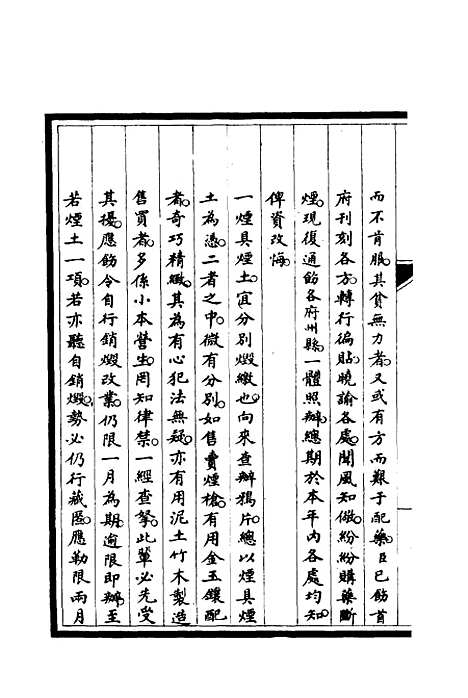 而不肯服其貧無力者又或有方而艱于配藥臣已飭首
府刊刻各方轉行徧貼曉諭各處聞風知儆紛紛購藥斷
煙現復通飭各府州縣一體照辦總期於本年內各處均知
俾資改悔
一煙具煙土宜分別燬繳也向來查辦鴉片總以煙具煙
土為憑二者之中微有分別如售賣煙槍有用金玉鑲配
者奇巧精緻其為有心犯法無疑亦有用泥土竹木製造
售買者多係小本營生罔知律禁一經查拏此輩必先受
其擾應飭令自行銷燬改業仍限一月為期逾限即辦至
若煙土一項若亦聽自銷燬勢必仍行藏匿應勒限兩月